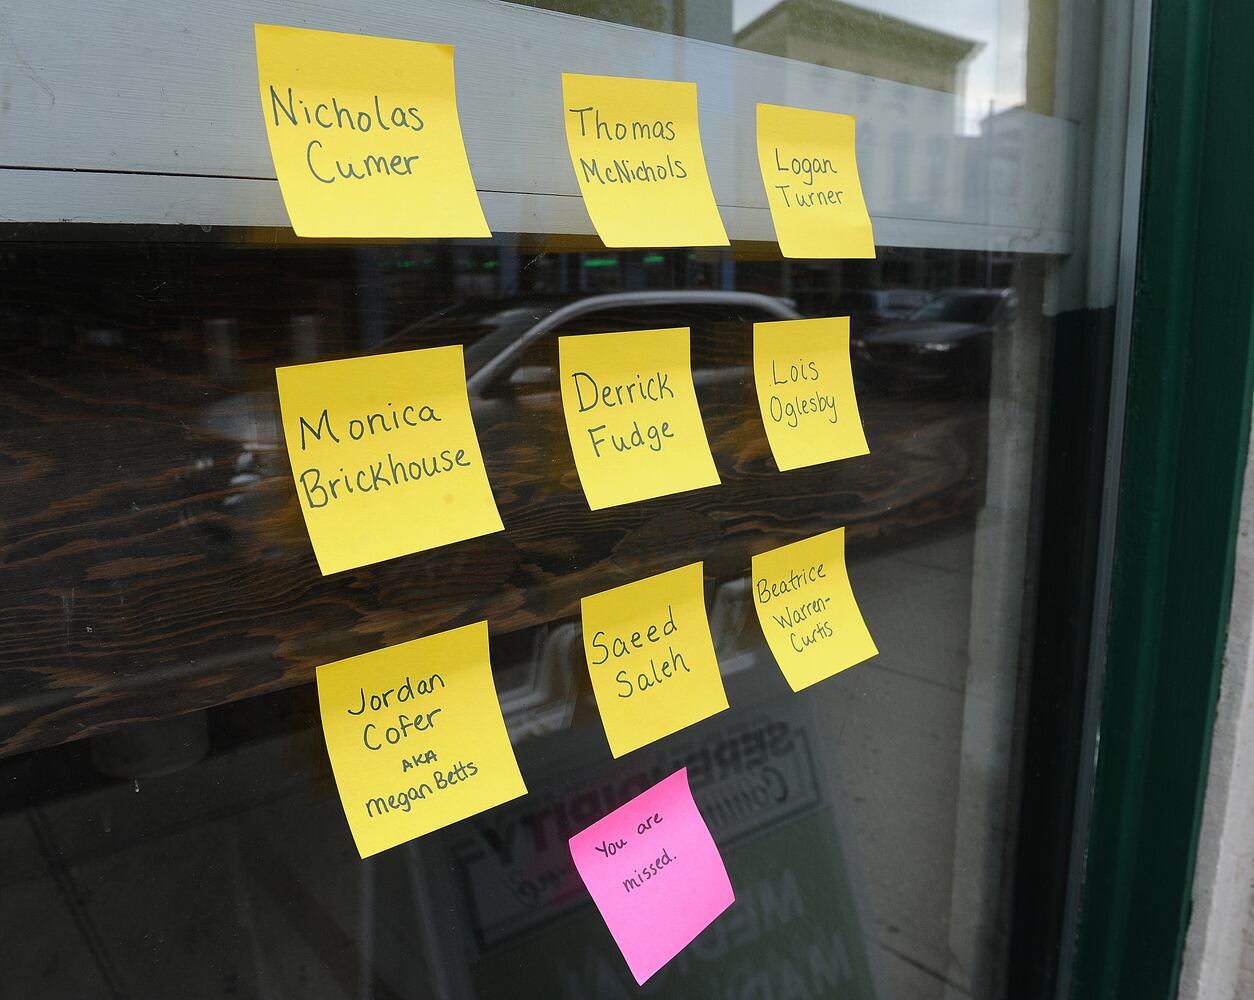 Nicholas
Cumer
Thomas
McNichols
Logan
Turner
Monica
Brickhouse
Derrick
Fudge
Lois
Oglesby
Jordan
Cofer
AKA
megan Betts
Saeed
Saleh
Beatrice
Warren-
Curtis
You are
missed.
SERENDIPITY